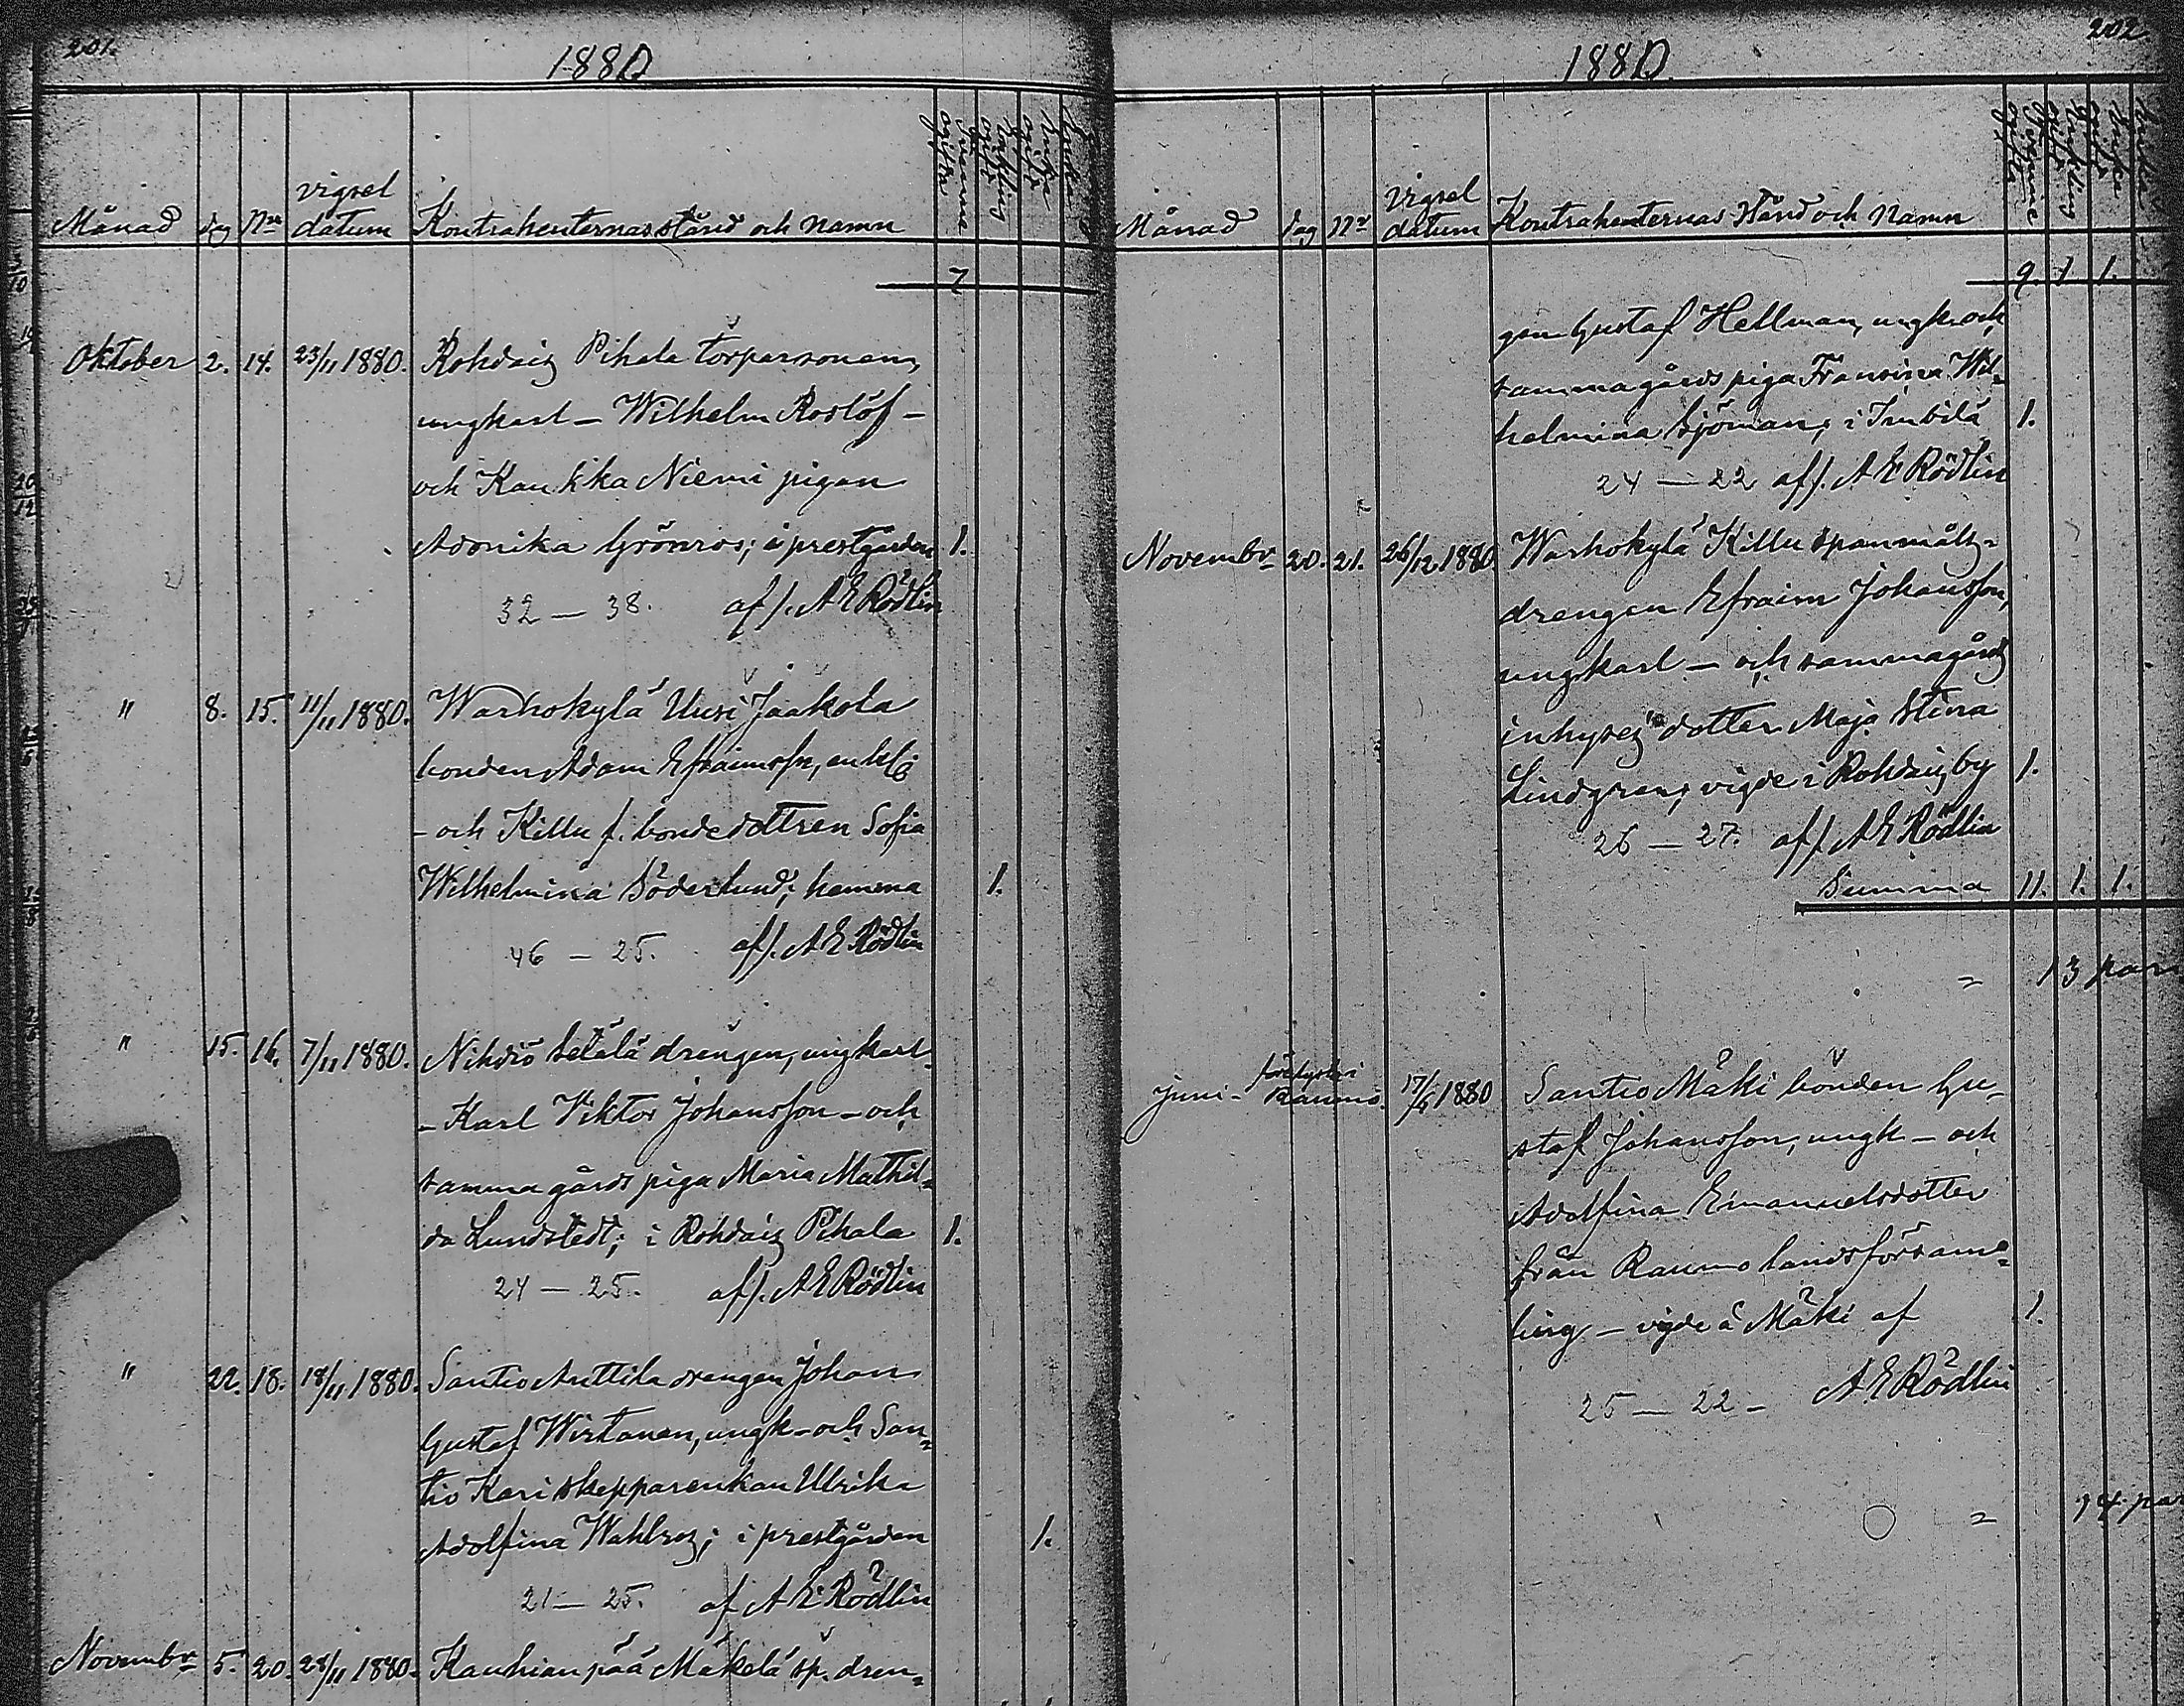 201.
1880
Månad dag Nr vigsel datum Kontrahenternas stånd och namn
7
Oktober 2. 14. 23/11 1880. Rohdais Pihala torparsonen,
ungkarl – Wilhelm Roslöf –
och Kaukka Niemi pigan
Adonika Grönros; i prestgården 1.
32 – 38. af /. A E Rödlin
" 8. 15. 11/11 1880. Warhokylä Uusi Jaakola
bonden Adam Efraimsson, enkl:g
– och Killu f. bondedottren Sofia
Wilhelmina Söderlund; hemma 1.
46 – 25. af /. A E Rödlin
" 15. 16. 7/11 1880. Nihdiö Setälä drengen, ungkarl
– Karl Viktor Johansson – och
samma gårds piga Maria Mathil-
da Lundstedt; i Rohdais Pihala 1.
24 – 25. af /. A E Rödlin
" 22. 18. 18/11 1880. Santio Anttila drengen Johan
Gustaf Wirtanen, ungk – och San-
tio Kari skepparenkan Ulrika
Adolfina Wahlros; i prestgården 1.
21 – 25. af A E Rödlin
Novembr 5. 20. 28/11 1880. Kauhianpää Mäkelä sp. dren-
202
1880.
Månad dag Nr vigsel datum Kontrahenternas stånd och namn
9. 1 1.
gen Gustaf Hellman, ungk. och
samma gårds piga Fransina Wil-
helmina Sjöman; i Imbilä 1.
24 – 22 af /. A E Rödlin
Novembr 20. 21. 26/12 1880 Warhokylä Killu spanmåls-
drengen Efraim Johansson,
ungkarl – och samma gårds
inhyses dotter Maja Stina
Lindgren; vigde i Rohdais by 1.
26 – 27. af /. A E Rödlin
Summa 11. 1. 1.
= 13 par
Juni - Raumo. 17/6 1880 Santio Mäki bonden Gu-
staf Johansson, ungk – och
Adolfina Emanuelsdotter
från Raumo landsförsam-
ling – vigde å Mäki af 1.
25 – 22 – A E Rödlin
= 14 par